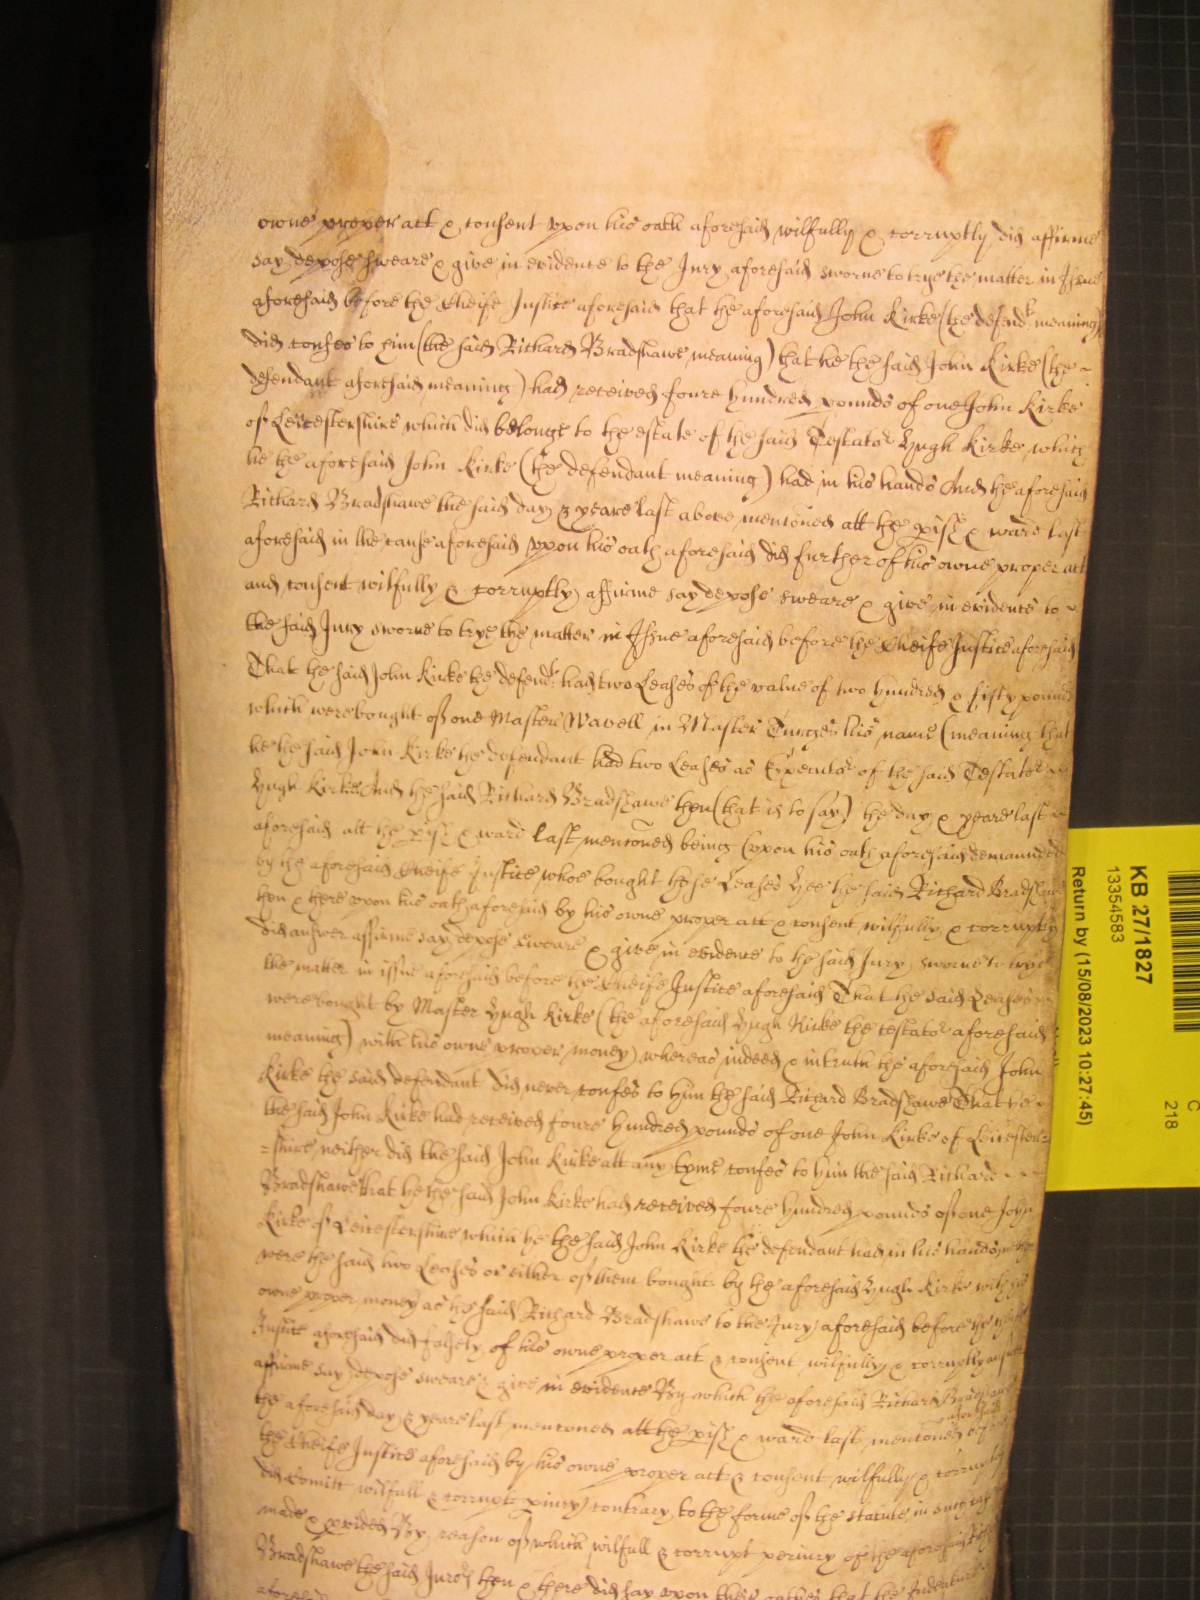 owne proper act & consent vpon his oath aforesaid wilfully & corruptly did affirme
say depose sweare & give in evidence to the Jury aforesaid sworne to trye the matter in Issue
aforesaid before the Cheife Justice aforesaid that he aforesaid John Kirke (the defendt meaning)
did confes to him (the said Richard Bradshawe meaning) that he the said John Kirke (the
defendant aforesaid meaning) had received foure hundred pounds of one John Kirke
of Leicestershire which did belonge to the estate of the said Testator Hugh Kirke which
he the aforesaid John Kirke (the defendant meaning) had in his hands And he aforesaid
Richard Bradshawe the said day & yeare last above mentoned att the pish & ward last
aforesaid in the cause aforesaid vpon his oath aforesaid did further of his owne proper act
and consent wilfully & corruptly affirme say depose sweare & give in evidence to
the said Jury sworne to trye the matter in Issue aforesaid before the Cheife Justice aforesaid
That he said John Kirke the defendt had two Leases of the value of two hundred & fifty pounds
which were bought of one Master Wavell in Master his name (meaning that
he the said John Kirke the defendant had two Leases as Executor of the said Testator
Hugh Kirke And he said Richard Bradshawe then (that is to say) the day & yeare last
aforesaid att the pish & ward last mentoned being (vpon his oath aforesaid demaunded
by the aforesaid Cheife Justice whoe bought those Leases Hee the said Richard Bradshawe
then & there vpon his oath aforesaid by his owne proper act & consent wilfully & corruptly
did answer affirme say depose sweare & give in evidence to the said Jury sworne to trye
the matter in issue aforesaid before the Cheife Justice aforesaid That the said Leases
were bought by Master Hugh Kirke (the aforesaid Hugh Kirke the testator aforesaid
meaning) with his owne proper money) whereas indeed & in truth the aforesaid John
Kirke the said defendant did never confes to him the said Richard Bradshawe That he
the said John Kirke had received foure hundred pounds of one John Kirke of Leicester=
=shire neither did the said John Kirke att any tyme confes to him the said Richard
Bradshawe that he the said John Kirke had received foure hundred pounds of one John
Kirke of Leicestershire which he the said John Kirke the defendant had in his hands
were the said two Leases or either of them bought by the aforesaid Hugh Kirke with his
owne proper money as he said Richard Bradshawe to the Jury aforesaid before the
Justice aforesaid did falsely of his owne proper act & consent wilfully & corruptly
affirme say depose sweare & give in evidence By which the aforesaid Richard Bradshawe
the aforesaid day & yeare last mentoned att the pish & ward last mentoned
the Cheife Justice aforesaid by his owne proper act & consent wilfully & corruptly
did Comitt wilfull & corrupt piury contrary to the forme of the statute in
made & pvided By reason of which wilfull & corrupt periury of the aforesaid
Bradshawe the said Jurors then & there did say vpon their oathes that the Indenture
KB 27/1827
13354583
Return by (15/08/2023 10:27:45)
C
218